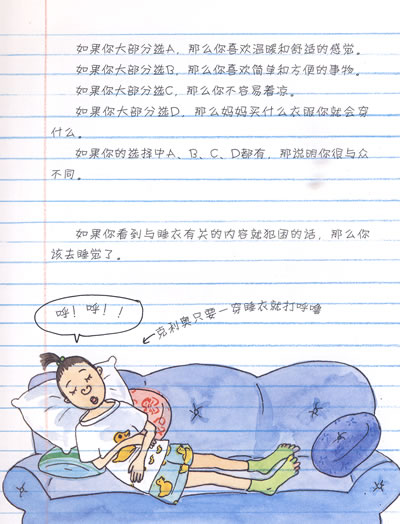 如果你大部分选A，那么你喜欢温暖和舒适的感觉。
如果你大部分选B，那么你喜欢简单和方便的事物。
如果你大部分选C，那么你不容易着凉。
如果你大部分选D，那么妈妈买什么衣服你就会穿
什么。
如果你的选择中A、B、C、D都有，那说明你很与众
不同。
如果你看到与睡衣有关的内容就犯困的话，那么你
该去睡觉了。
呼！呼！！
克利奥只要一穿睡衣就打呼噜